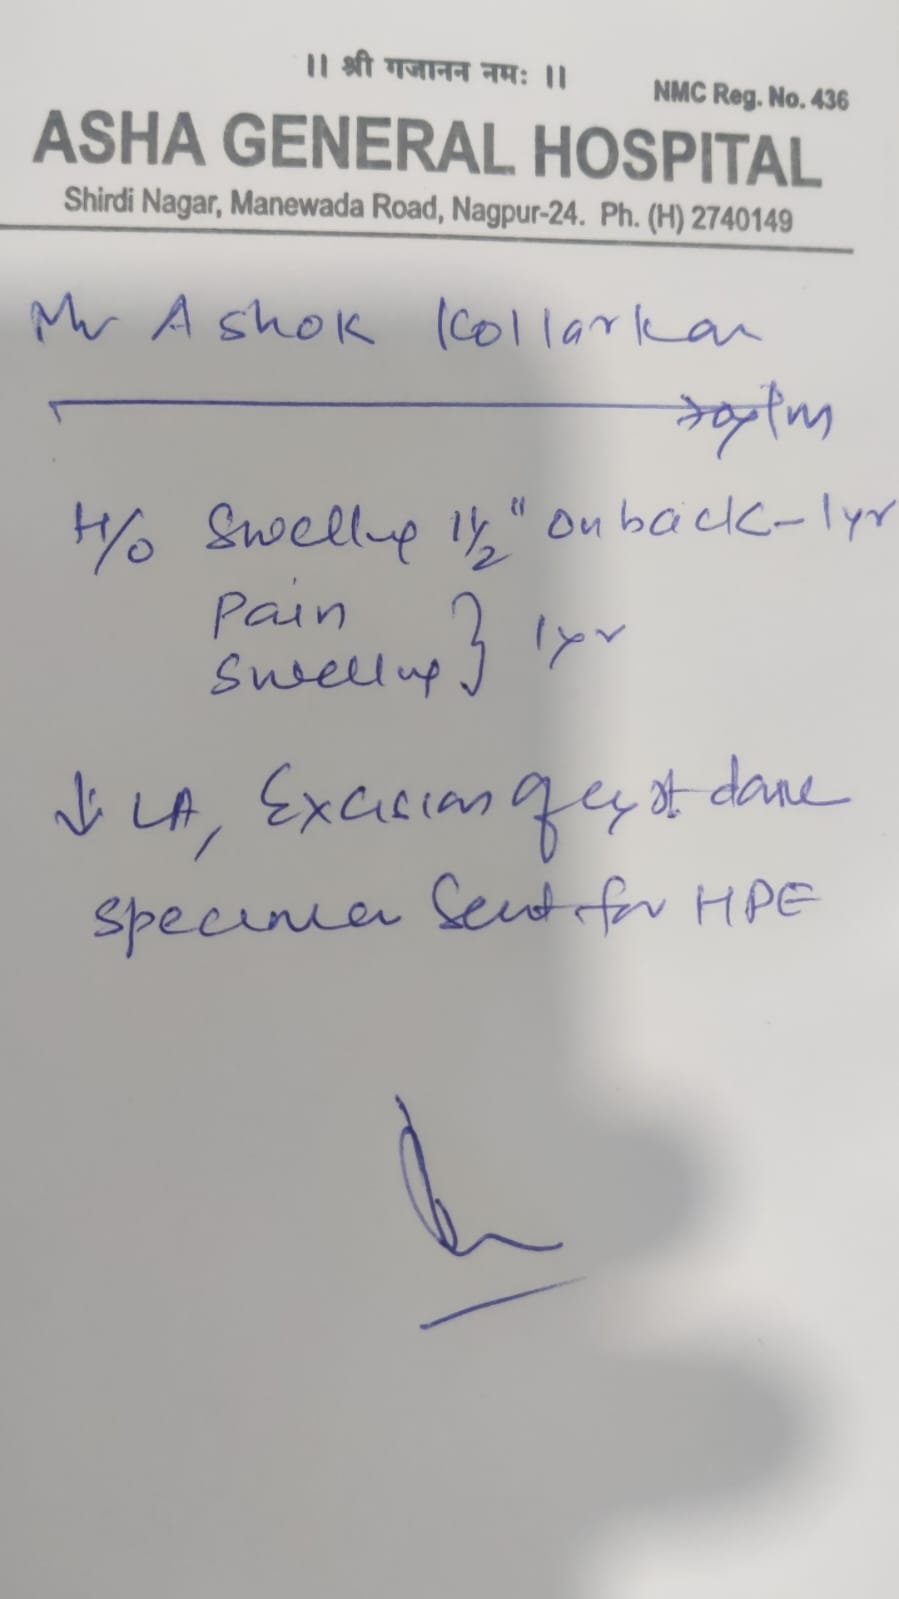 || श्री गजानन नमः ||
NMC Reg. No. 436
ASHA GENERAL HOSPITAL
Shirdi Nagar, Manewada Road, Nagpur-24. Ph. (H) 2740149
Mr Ashok Kollarkar
H/O Swelling 1½" on back - 1yr
Pain
Swelling } 1yr
↓ LA, Excision of cyst done
specimen Sent for HPE